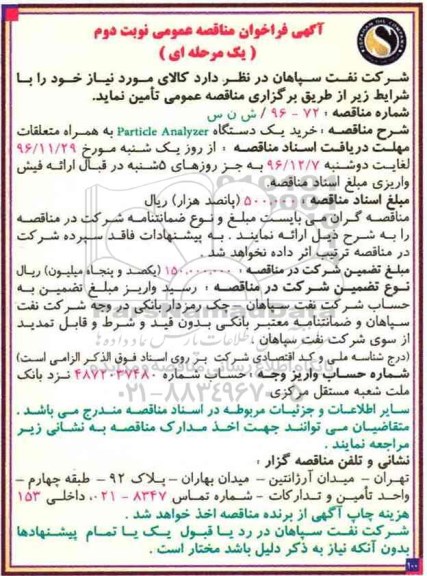 آگهی فراخوان مناقصه عمومی نوبت دوم
( یک مرحله ای )
شرکت نفت سپاهان در نظر دارد کالای مورد نیاز خود را با
شرایط زیر از طریق برگزاری مناقصه عمومی تأمین نماید.
شماره مناقصه : ۷۲ - ۹۶ / ش ن س
شرح مناقصه : خرید یک دستگاه Particle Analyzer به همراه متعلقات
مهلت دریافت اسناد مناقصه : از روز یک شنبه مورخ ۹۶/۱۱/۲۹
لغایت دوشنبه ۹۶/۱۲/۷ به جز روزهای ۵شنبه در قبال ارائه فیش
واریزی مبلغ اسناد مناقصه.
مبلغ اسناد مناقصه : ۵۰۰,۰۰۰ (پانصد هزار) ریال
مناقصه گران می بایست مبلغ و نوع ضمانتنامه شرکت در مناقصه
را به شرح ذیل ارائه نمایند . به پیشنهادات فاقد سپرده شرکت
در مناقصه ترتیب اثر داده نخواهد شد .
مبلغ تضمین شرکت در مناقصه : ۱۵۰,۰۰۰,۰۰۰ (یکصد و پنجاه میلیون) ریال
نوع تضمین شرکت در مناقصه : رسید واریز مبلغ تضمین به
حساب شرکت نفت سپاهان - چک رمزدار بانکی در وجه شرکت نفت
سپاهان و ضمانتنامه معتبر بانکی بدون قید و شرط و قابل تمدید
از سوی شرکت نفت سپاهان .
(درج شناسه ملی و کد اقتصادی شرکت بر روی اسناد فوق الذکر الزامی است)
شماره حساب واریز وجه : حساب شماره ۴۸۷۲۰۳۷۴۸۰ نزد بانک
ملت شعبه مستقل مرکزی
سایر اطلاعات و جزئیات مربوطه در اسناد مناقصه مندرج می باشد .
متقاضیان می توانند جهت اخذ مدارک مناقصه به نشانی زیر
مراجعه نمایند .
نشانی و تلفن مناقصه گزار :
تهران - میدان آرژانتین - میدان بهاران - پلاک ۹۲ - طبقه چهارم -
واحد تأمین و تدارکات - شماره تماس ۸۳۴۷ - ۰۲۱ ، داخلی ۱۵۳
هزینه چاپ آگهی از برنده مناقصه اخذ خواهد شد .
شرکت نفت سپاهان در رد یا قبول یک یا تمام پیشنهادها
بدون آنکه نیاز به ذکر دلیل باشد مختار است .
۱۰۰
ParsNamadData
۰۲۱-۸۸۳۴۹۶۷۰